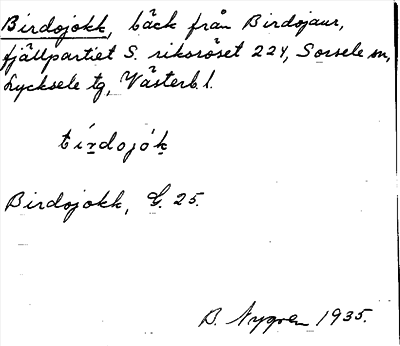 Birdojokk, bäck från Birdojaur,
fjällpartiet S. riksröset 224, Sorsele sn,
Lycksele tg, Västerb. l.
bírdojók
Birdojokk, G. 25.
B. Nygren 1935.